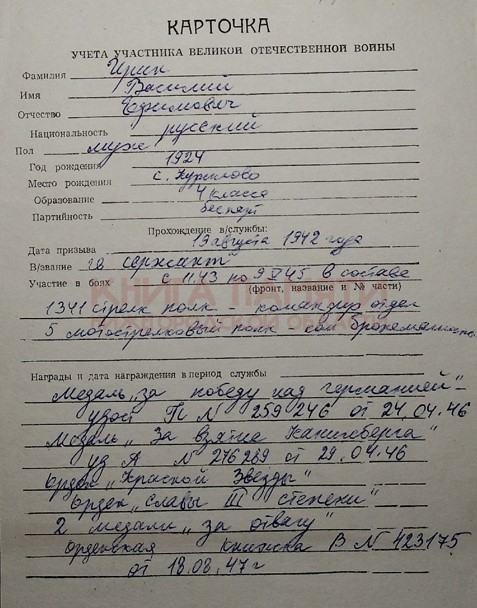 КАРТОЧКА
УЧЕТА УЧАСТНИКА ВЕЛИКОЙ ОТЕЧЕСТВЕННОЙ ВОЙНЫ
Фамилия
Имя Василий
Отчество Ефимович
Национальность русский
Пол муж
Год рождения 1924
Место рождения с. Курилово
Образование 4 класса
Партийность беспарт
Прохождение в/службы:
Дата призыва 19 августа 1942 года
В/звание гв сержант
Участие в боях с 11.43 по 9 V 45 в составе
(фронт, название и № части)
1341 стрелк полк - командир отдел
5 мотострелковый полк - ком
Награды и дата награждения в период службы
Медаль „за победу над германией" -
удост П N 259246 от 24.04.46
Медаль „За взятие Канигсберга"
уд А N 276289 от 29.04.46
Орден „Красной Звезды"
Орден „Славы III степени"
2 медали „за отвагу"
Орденская Книжка В N 423175
от 18.08.47 г